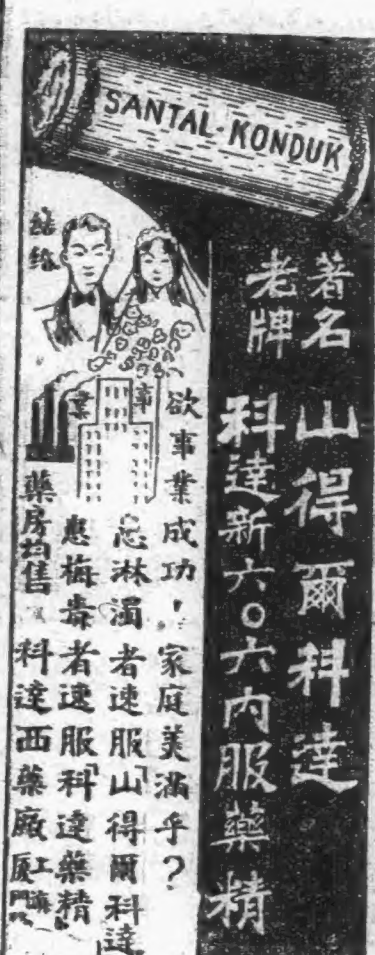 SANTAL-KONDUK
著名
老牌
山得爾科達
科達新六〇六内服藥精
結婚
事業
欲事業成功！家庭美滿乎？
患淋濁者速服「山得爾科達
患梅毒者速服「科達藥精」
藥房均售 科達西藥廠
厦門